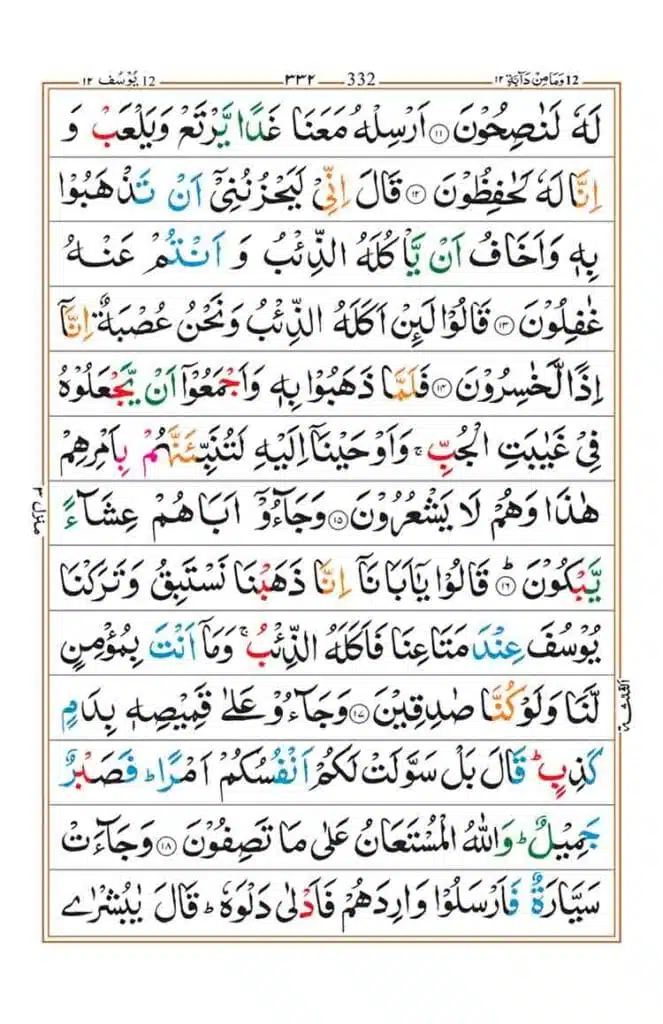 12 يُوْسُف ١٢ ٣٣٢ 332 12 وَمَا مِنْ دَآبَّةٍ ١٢
لَهٗ لَنٰصِحُوْنَ ۝١١ اَرْسِلْهُ مَعَنَا غَدًا يَّرْتَعْ وَيَلْعَبْ وَ
اِنَّا لَهٗ لَحٰفِظُوْنَ ۝١٢ قَالَ اِنِّىْ لَيَحْزُنُنِىْۤ اَنْ تَذْهَبُوْا
بِهٖ وَاَخَافُ اَنْ يَّاْكُلَهُ الذِّئْبُ وَ اَنْتُمْ عَنْهُ
غٰفِلُوْنَ ۝١٣ قَالُوْا لَئِنْ اَكَلَهُ الذِّئْبُ وَنَحْنُ عُصْبَةٌ اِنَّاۤ
اِذًا لَّخٰسِرُوْنَ ۝١٤ فَلَمَّا ذَهَبُوْا بِهٖ وَاَجْمَعُوْۤا اَنْ يَّجْعَلُوْهُ
فِىْ غَيٰبَتِ الْجُبِّ ۚ وَاَوْحَيْنَاۤ اِلَيْهِ لَتُنَبِّئَنَّهُمْ بِاَمْرِهِمْ
هٰذَا وَهُمْ لَا يَشْعُرُوْنَ ۝١٥ وَجَآءُوْۤ اَبَاهُمْ عِشَآءً
يَّبْكُوْنَ ؕ ۝١٦ قَالُوْا يٰۤاَبَانَاۤ اِنَّا ذَهَبْنَا نَسْتَبِقُ وَتَرَكْنَا
يُوْسُفَ عِنْدَ مَتَاعِنَا فَاَكَلَهُ الذِّئْبُ ۚ وَمَاۤ اَنْتَ بِمُؤْمِنٍ
لَّنَا وَلَوْ كُنَّا صٰدِقِيْنَ ۝١٧ وَجَآءُوْ عَلٰى قَمِيْصِهٖ بِدَمٍ
كَذِبٍ ؕ قَالَ بَلْ سَوَّلَتْ لَكُمْ اَنْفُسُكُمْ اَمْرًا ؕ فَصَبْرٌ
جَمِيْلٌ ؕ وَاللّٰهُ الْمُسْتَعَانُ عَلٰى مَا تَصِفُوْنَ ۝١٨ وَجَآءَتْ
سَيَّارَةٌ فَاَرْسَلُوْا وَارِدَهُمْ فَاَدْلٰى دَلْوَهٗ ؕ قَالَ يٰبُشْرٰى
منزل ٣
الثلثة